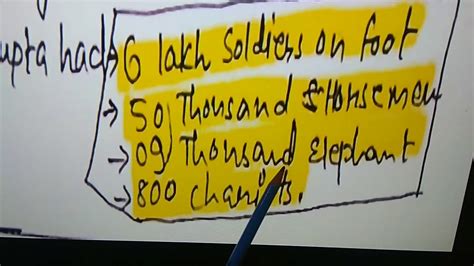 upta had → 6 lakh Soldiers on foot
→ 50 Thousand & Horsemen
→ 09 Thousand Elephant
→ 800 chariots.